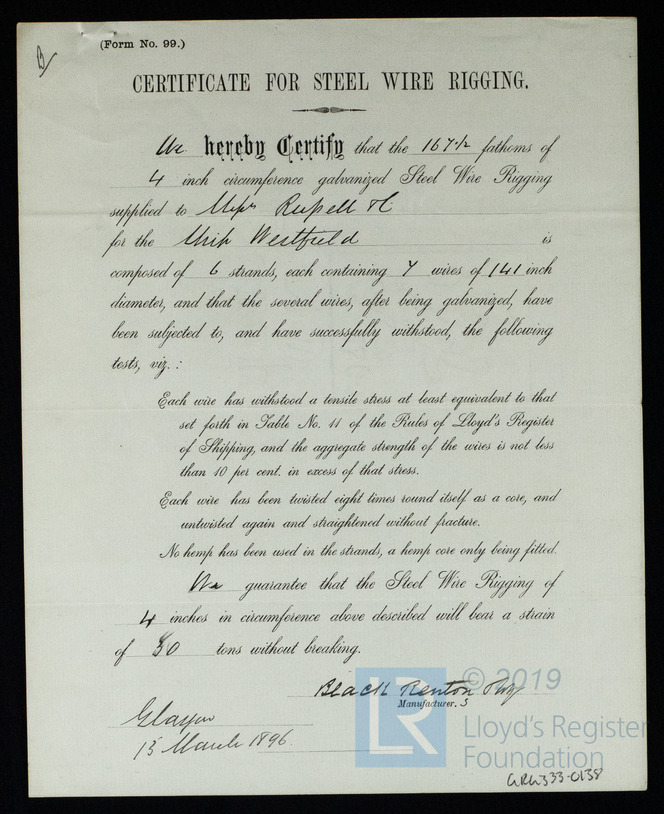 (Form No. 99.)
CERTIFICATE FOR STEEL WIRE RIGGING.
We hereby Certify that the 167½ fathoms of
4 inch circumference galvanized Steel Wire Rigging
supplied to Messrs Russell & Co
for the Ship Westfield is
composed of 6 strands, each containing 7 wires of 141 inch
diameter, and that the several wires, after being galvanized, have
been subjected to, and have successfully withstood, the following
tests, viz.:
Each wire has withstood a tensile stress at least equivalent to that
set forth in Table No. 11 of the Rules of Lloyd's Register
of Shipping, and the aggregate strength of the wires is not less
than 10 per cent. in excess of that stress.
Each wire has been twisted eight times round itself as a core, and
untwisted again and straightened without fracture.
No hemp has been used in the strands, a hemp core only being fitted.
We guarantee that the Steel Wire Rigging of
4 inches in circumference above described will bear a strain
of 30 tons without breaking.
Black Renton
Manufacturer.s
Glasgow
15 March 1896.
LR © 2019
Lloyd's Register
Foundation
GRG333-0138